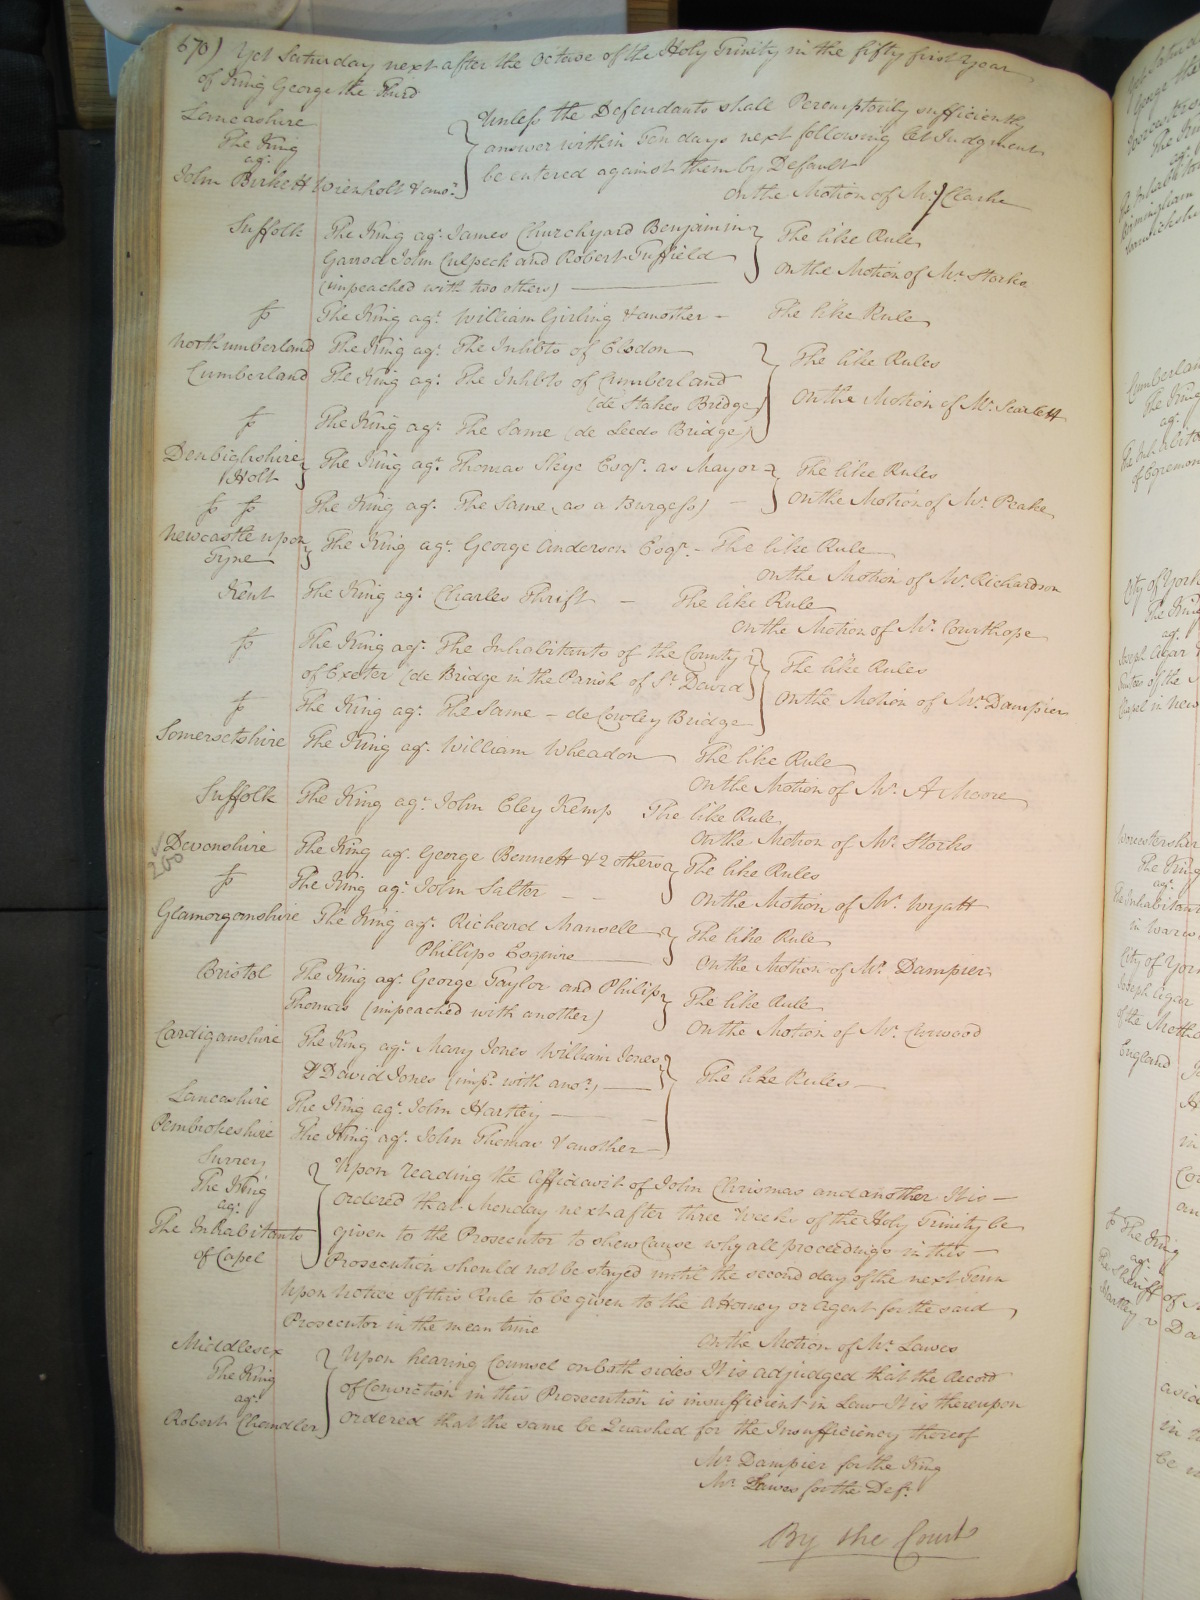 670) Yet Saturday next after the Octave of the Holy Trinity in the fifty first Year
of King George the Third
Lancashire
The King
agt.
John Birkett Wienholt & anor.
Unless the Defendants shall Peremptorily sufficiently
answer within Ten days next following let Judgment
be entered against them by Default
On the Motion of Mr. Clarke
Suffolk The King agt. James Churchyard Benjamin
Garrod John Culpeck and Robert Tuffield
(impeached with two others)
The like Rule
On the Motion of Mr. Storks
fo The King agt. William Girling & another – The like Rule
Northumberland The King agt. The Inhbts of Elsdon
Cumberland The King agt. The Inhbts of Cumberland
(de Stakes Bridge)
fo The King agt. The Same (de Leeds Bridge)
The like Rules
On the Motion of Mr. Scarlett
Denbighshire
Holt
The King agt. Thomas Skye Esqr. as Mayor
fo fo The King agt. The Same (as a Burgess) –
The like Rules
On the Motion of Mr. Peake
Newcastle upon
Tyne
The King agt. George Anderson Esqr. – The like Rule
On the Motion of Mr. Richardson
Kent The King agt. Charles Thrift – The like Rule
On the Motion of Mr. Courthope
fo The King agt. The Inhabitants of the County
of Exeter (de Bridge in the Parish of St. David
fo The King agt. The Same – de Cowley Bridge
The like Rules
On the Motion of Mr. Dampier
Somersetshire The King agt. William Wheadon The like Rule
On the Motion of Mr. A Moore
Suffolk The King agt. John Eley Kemp The like Rule
On the Motion of Mr. Storks
Devonshire The King agt. George Bennett & 2 others
fo The King agt. John Salter – –
The like Rules
On the Motion of Mr. Wyatt
Glamorganshire The King agt. Richard Mansell
Phillips Esquire
The like Rule
On the Motion of Mr. Dampier
Bristol The King agt. George Taylor and Philip
Thomas (impeached with another)
The like Rule
On the Motion of Mr. Curwood
Cardiganshire The King agt. Mary Jones William Jones
& David Jones (impd. with anor.)
Lancashire The King agt. John Hartley
Pembrokeshire The King agt. John Thomas & another
The like Rules –
Surrey
The King
agt.
The Inhabitants
of Capel
Upon reading the Affidavit of John Chrismas and another It is –
Ordered that Monday next after three Weeks of the Holy Trinity be
given to the Prosecutor to shew Cause why all proceedings in this –
Prosecution should not be stayed until the second day of the next Term
Upon Notice of this Rule to be given to the Attorney or Agent for the said
Prosecutor in the mean time
On the Motion of Mr. Lawes
Middlesex
The King
agt.
Robert Chandler
Upon hearing Counsel on both sides It is adjudged that the Record
of Conviction in this Prosecution is insufficient in Law It is thereupon
Ordered that the same be Quashed for the Insufficiency thereof
Mr. Dampier for the King
Mr. Lawes for the Deft.
By the Court